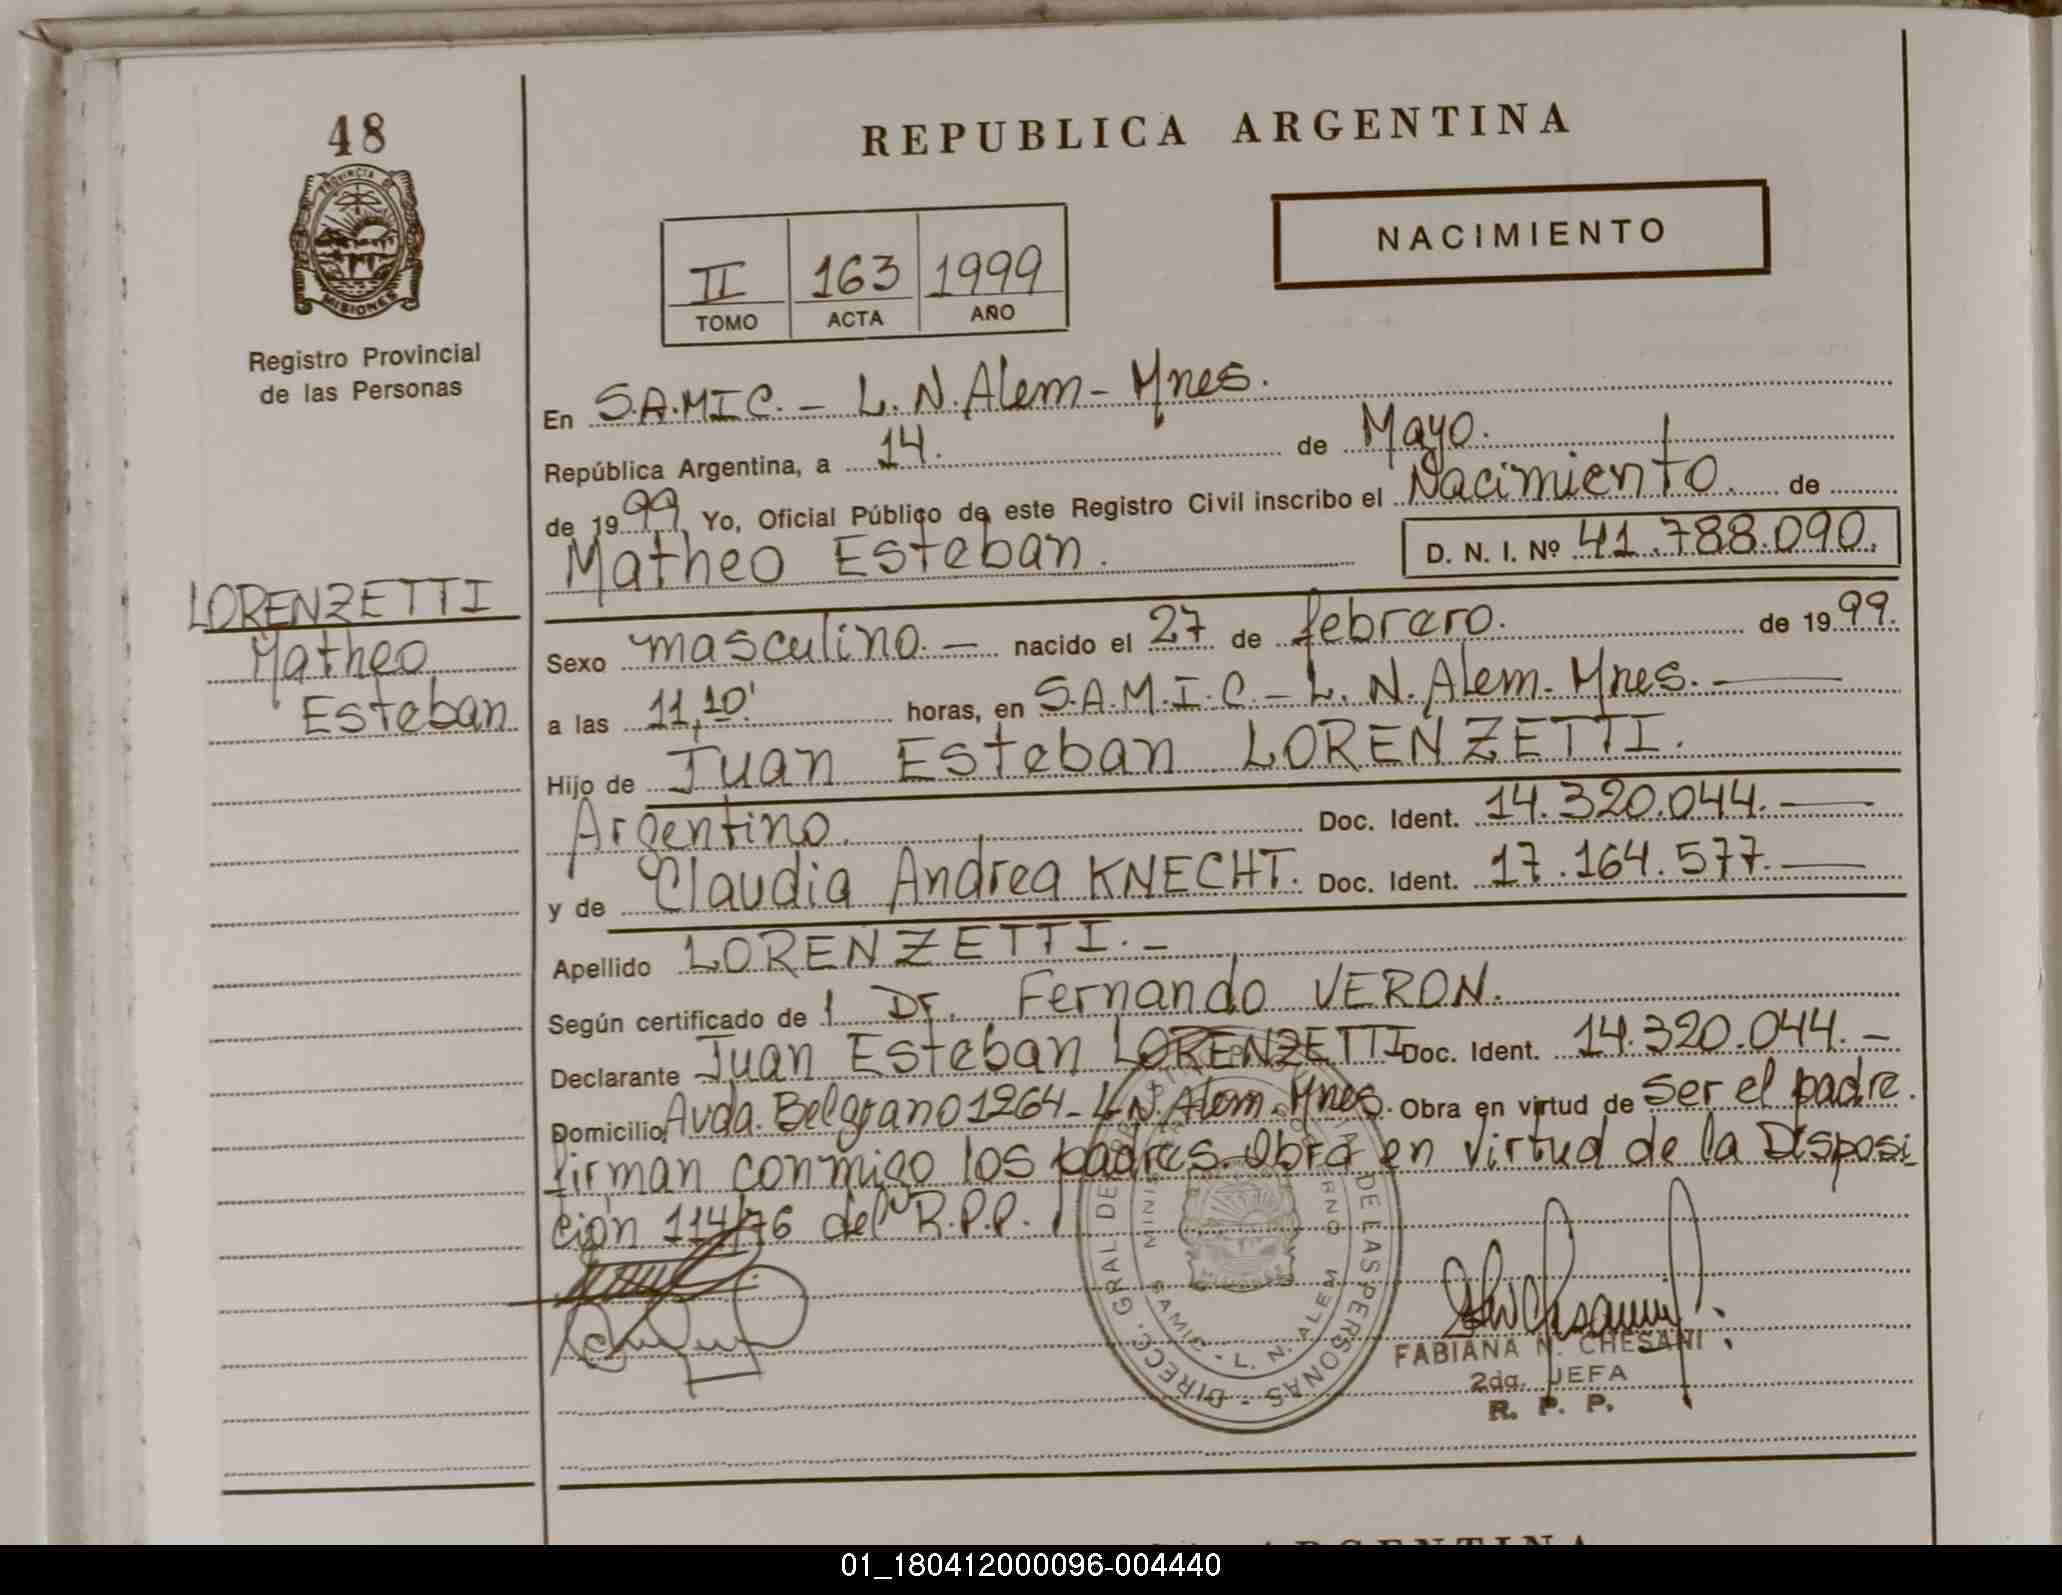 48
REPUBLICA ARGENTINA
PROVINCIA DE
MISIONES
NACIMIENTO
II 163 1999
TOMO ACTA AÑO
Registro Provincial
de las Personas
En S.A.M.I.C. - L. N. Alem - Mnes.
República Argentina, a 14. de Mayo.
de 1999 Yo, Oficial Público de este Registro Civil inscribo el Nacimiento. de
Matheo Esteban. D. N. I. Nº 41.788.090.
LORENZETTI
Matheo
Esteban
Sexo masculino. - nacido el 27 de febrero. de 1999.
a las 11,10' horas, en S.A.M.I.C. - L. N. Alem - Mnes. -
Hijo de Juan Esteban LORENZETTI.
Argentino. Doc. Ident. 14.320.044. -
y de Claudia Andrea KNECHT. Doc. Ident. 17.164.577. -
Apellido LORENZETTI. -
Según certificado de l Dr. Fernando VERON.
Declarante Juan Esteban LORENZETTI Doc. Ident. 14.320.044. -
Domicilio Avda. Belgrano 1264 - L.N. Alem - Mnes. Obra en virtud de ser el padre.
firman conmigo los padres. Obra en virtud de la Disposi
ción 114/76 del R.P.P.
DIRECC. GRAL DE DE LAS PERSONAS
SAMIC - L. N. ALEM
FABIANA N. CHESANI
2da. JEFA
R. P. P.
01_180412000096-004440